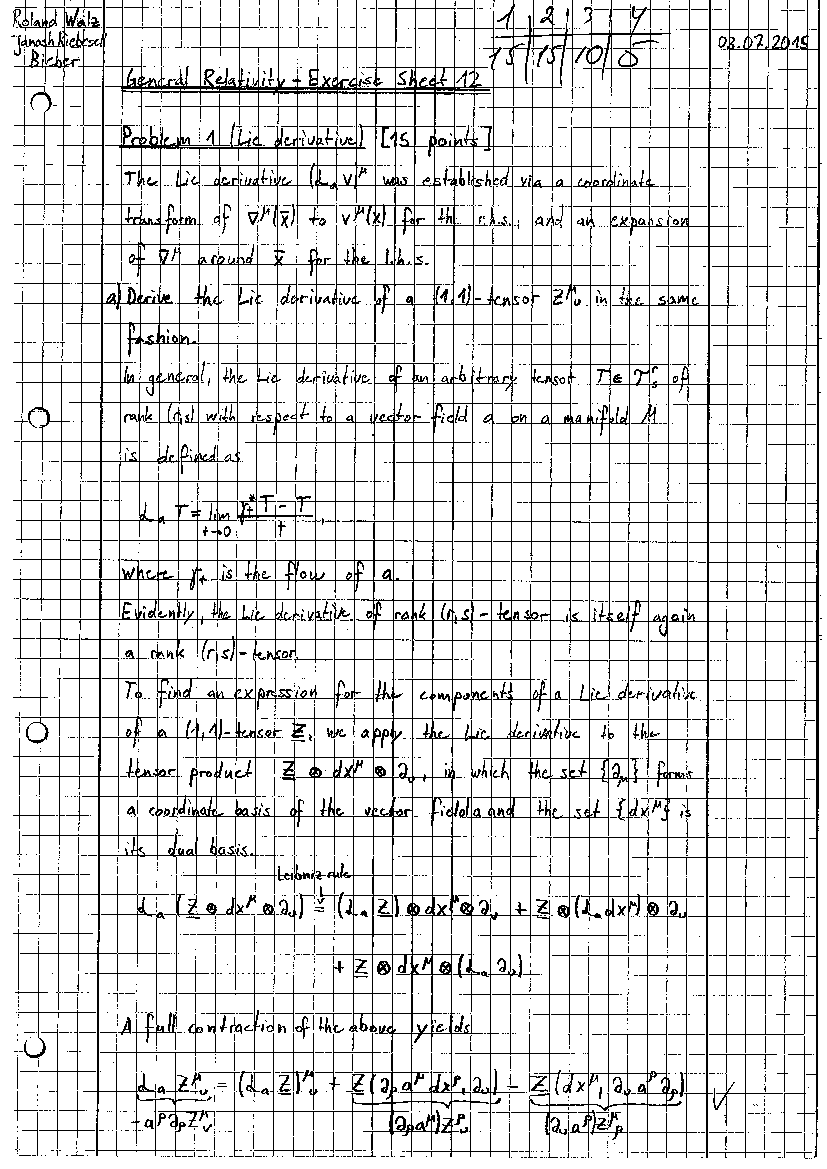 Roland Walz
Janosh Riebesell
Bicher
1 | 2 | 3 | 4
15 | 15 | 10 | 5
03.07.2015
General Relativity - Exercise Sheet 12
Problem 1 (Lie derivative) [15 points]
The Lie derivative (ℒ_a v)^μ was established via a coordinate
transform of v̄^μ(x̄) to v^μ(x) for the r.h.s. and an expansion
of v̄^μ around x̄ for the l.h.s.
a) Derive the Lie derivative of a (1,1)-tensor Z^μ_ν in the same
fashion.
In general, the Lie derivative of an arbitrary tensor T ∈ 𝒯^r_s of
rank (r,s) with respect to a vector field a on a manifold M
is defined as
ℒ_a T = lim_{t→0} (γ_t^* T - T)/t,
where γ_t is the flow of a.
Evidently, the Lie derivative of rank (r,s)-tensor is itself again
a rank (r,s)-tensor.
To find an expression for the components of a Lie derivative
of a (1,1)-tensor Z, we apply the Lie derivative to the
tensor product Z ⊗ dx^μ ⊗ ∂_ν, in which the set {∂_μ} forms
a coordinate basis of the vector field a and the set {dx^μ} is
its dual basis.
Leibniz rule
ℒ_a (Z ⊗ dx^μ ⊗ ∂_ν) = (ℒ_a Z) ⊗ dx^μ ⊗ ∂_ν + Z ⊗ (ℒ_a dx^μ) ⊗ ∂_ν
+ Z ⊗ dx^μ ⊗ (ℒ_a ∂_ν)
A full contraction of the above yields
ℒ_a Z^μ_ν = (ℒ_a Z)^μ_ν + Z(∂_ρ a^μ dx^ρ, ∂_ν) - Z(dx^μ, ∂_ν a^ρ ∂_ρ) ✓
-a^ρ ∂_ρ Z^μ_ν (∂_ρ a^μ) Z^ρ_ν (∂_ν a^ρ) Z^μ_ρ